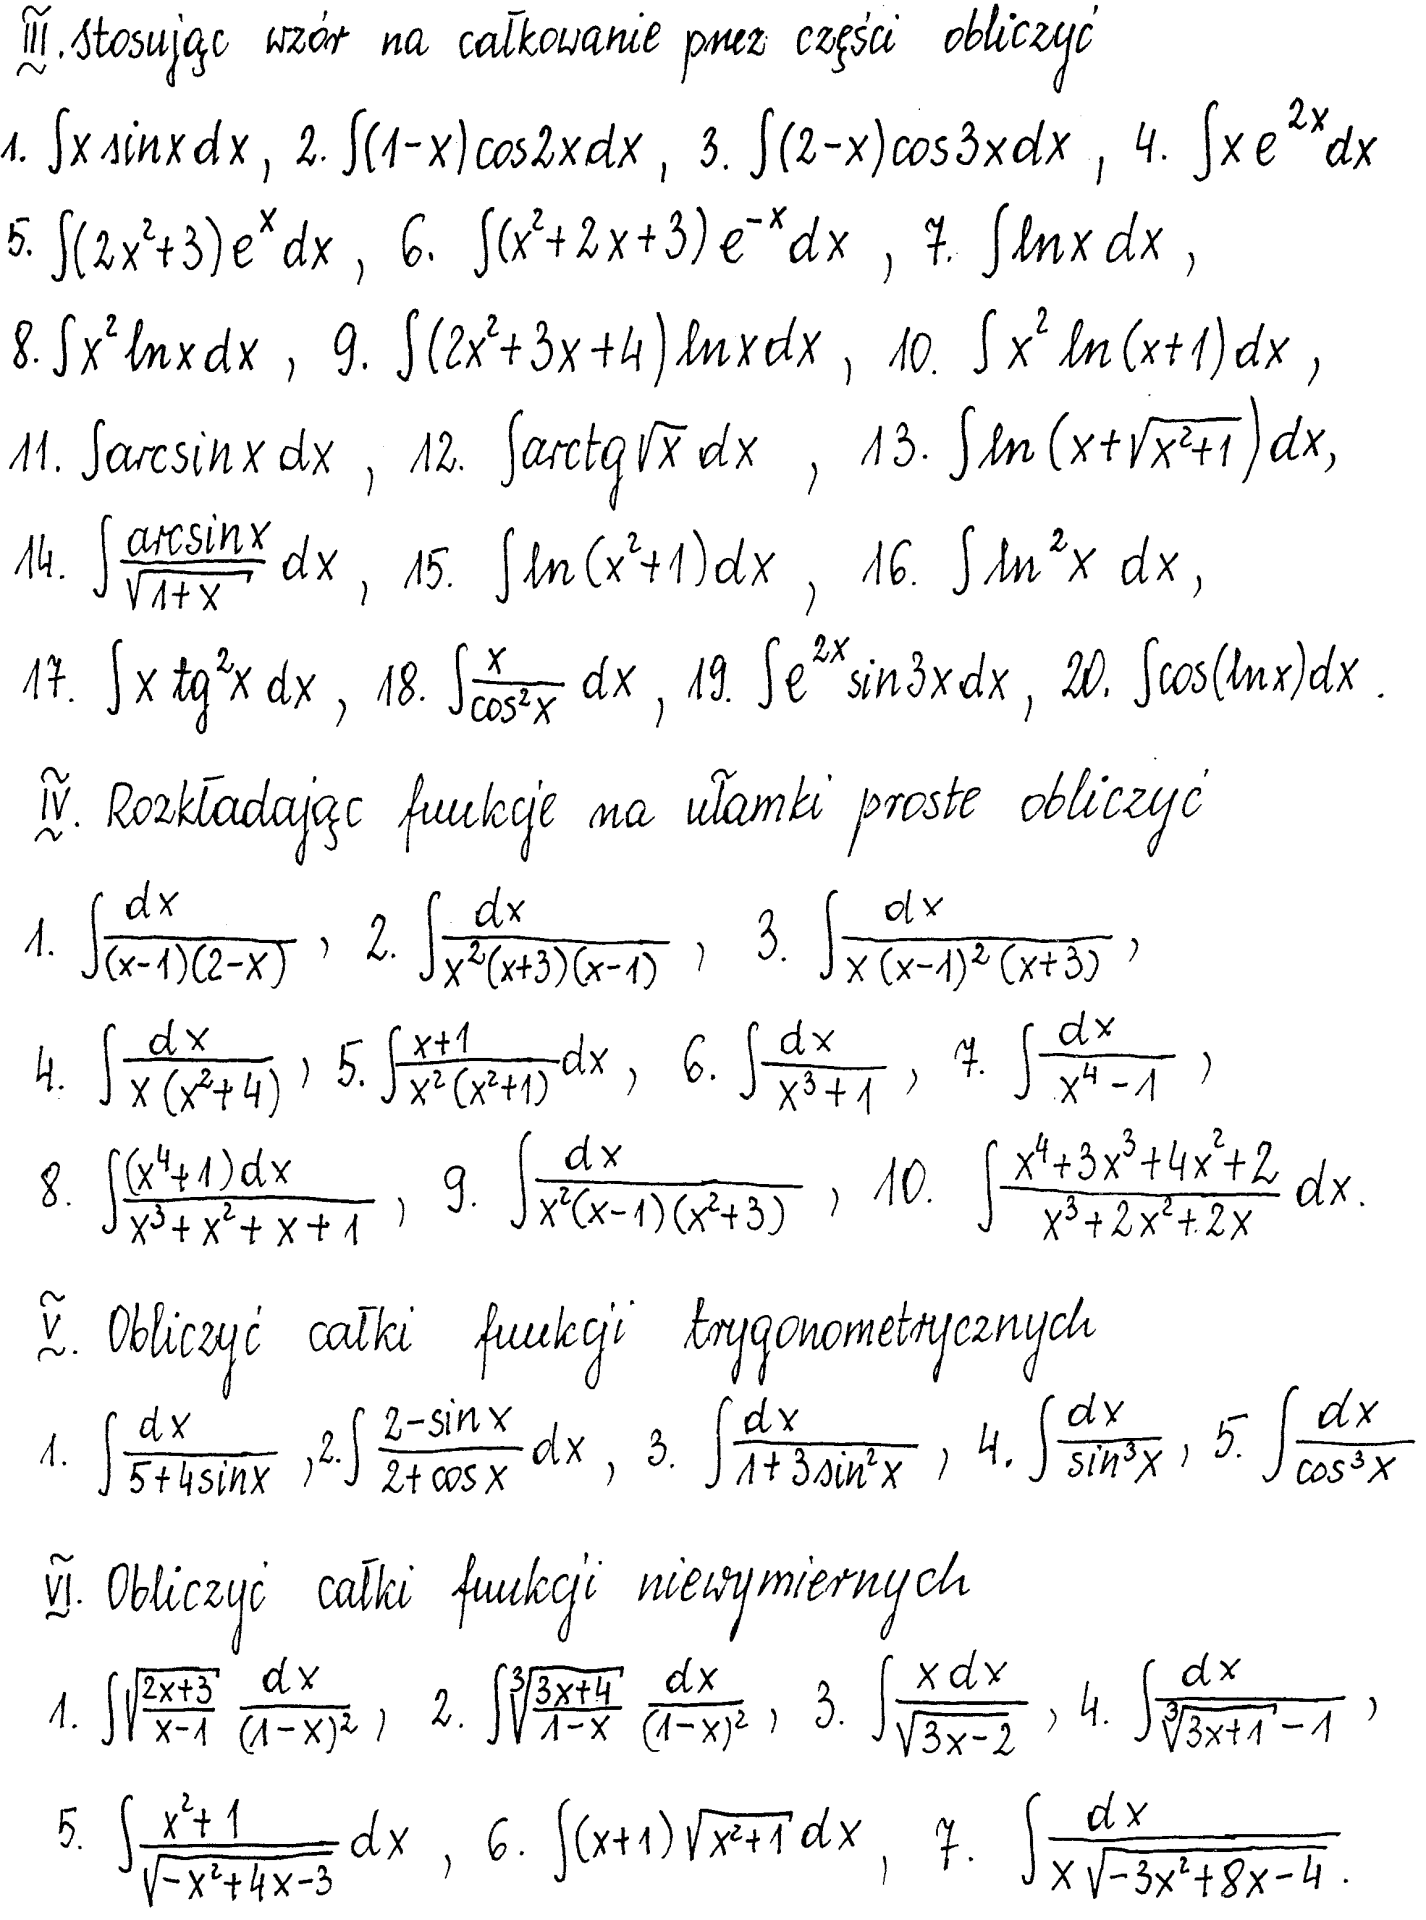 III. Stosując wzór na całkowanie przez części obliczyć
1. ∫x sinx dx, 2. ∫(1-x)cos2x dx, 3. ∫(2-x)cos3x dx, 4. ∫x e^{2x} dx
5. ∫(2x²+3)e^x dx, 6. ∫(x²+2x+3)e^{-x} dx, 7. ∫lnx dx,
8. ∫x² lnx dx, 9. ∫(2x²+3x+4)lnx dx, 10. ∫x² ln(x+1)dx,
11. ∫arcsinx dx, 12. ∫arctg√x dx, 13. ∫ln(x+√(x²+1))dx,
14. ∫(arcsinx)/(√(1+x)) dx, 15. ∫ln(x²+1)dx, 16. ∫ln²x dx,
17. ∫x tg²x dx, 18. ∫x/(cos²x) dx, 19. ∫e^{2x} sin3x dx, 20. ∫cos(lnx)dx.
IV. Rozkładając funkcje na ułamki proste obliczyć
1. ∫dx/((x-1)(2-x)), 2. ∫dx/(x²(x+3)(x-1)), 3. ∫dx/(x(x-1)²(x+3)),
4. ∫dx/(x(x²+4)), 5. ∫(x+1)/(x²(x²+1)) dx, 6. ∫dx/(x³+1), 7. ∫dx/(x⁴-1),
8. ∫(x⁴+1)dx/(x³+x²+x+1), 9. ∫dx/(x²(x-1)(x²+3)), 10. ∫(x⁴+3x³+4x²+2)/(x³+2x²+2x) dx.
V. Obliczyć całki funkcji trygonometrycznych
1. ∫dx/(5+4sinx), 2. ∫(2-sinx)/(2+cosx) dx, 3. ∫dx/(1+3sin²x), 4. ∫dx/(sin³x), 5. ∫dx/(cos³x)
VI. Obliczyć całki funkcji niewymiernych
1. ∫√((2x+3)/(x-1)) dx/((1-x)²), 2. ∫∛((3x+4)/(1-x)) dx/((1-x)²), 3. ∫x dx/(√(3x-2)), 4. ∫dx/(∛(3x+1)-1),
5. ∫(x²+1)/(√(-x²+4x-3)) dx, 6. ∫(x+1)√(x²+1) dx, 7. ∫dx/(x√(-3x²+8x-4)).